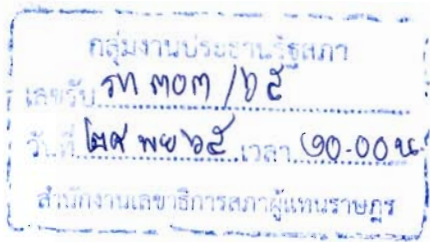 กลุ่มงานประธานรัฐสภา
เลขรับ รภ ๓๐๓ /๖๕
วันที่ ๒๙ พย ๖๕ เวลา ๑๐.๐๐ น
สำนักงานเลขาธิการสภาผู้แทนราษฎร